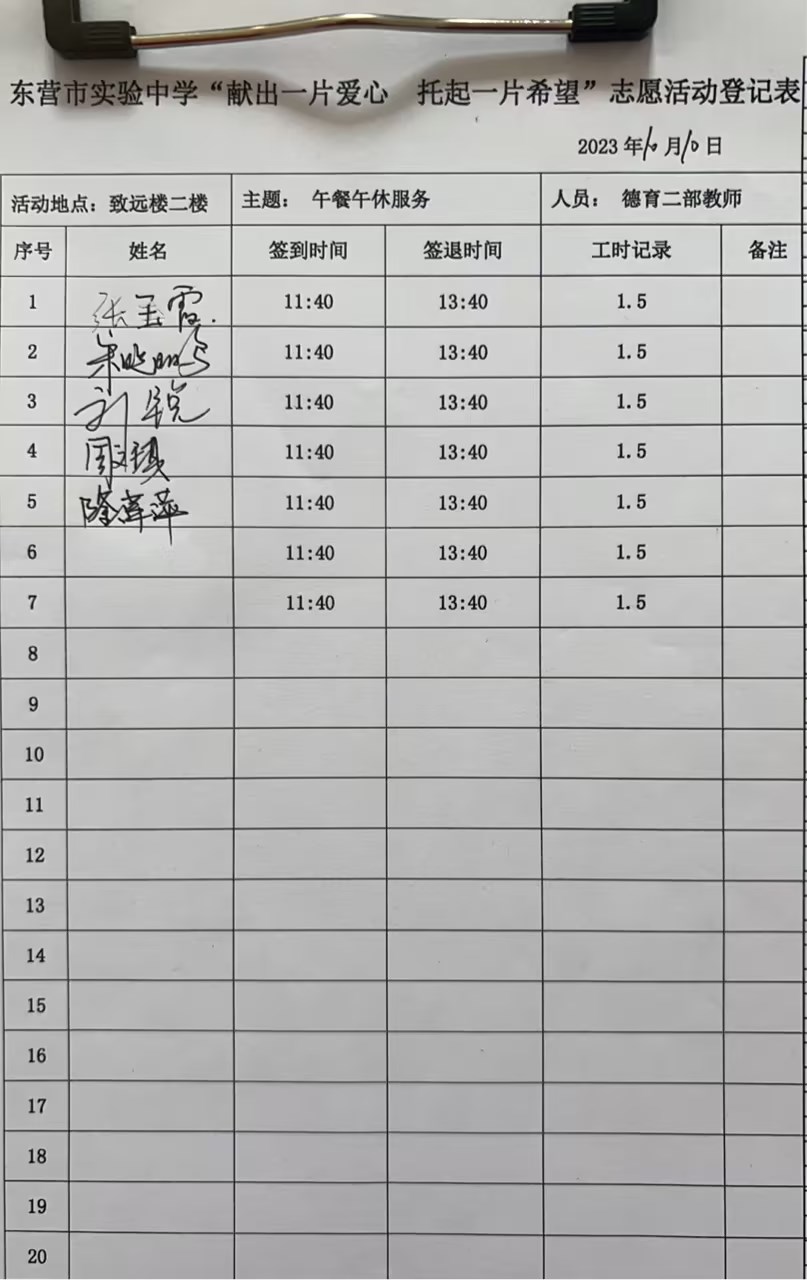 东营市实验中学“献出一片爱心 托起一片希望”志愿活动登记表
2023 年 10 月 10 日
活动地点：致远楼二楼 主题： 午餐午休服务 人员： 德育二部教师
序号 姓名 签到时间 签退时间 工时记录 备注
1 张玉霞 11:40 13:40 1.5
2 11:40 13:40 1.5
3 刘锐 11:40 13:40 1.5
4 11:40 13:40 1.5
5 11:40 13:40 1.5
6 11:40 13:40 1.5
7 11:40 13:40 1.5
8
9
10
11
12
13
14
15
16
17
18
19
20